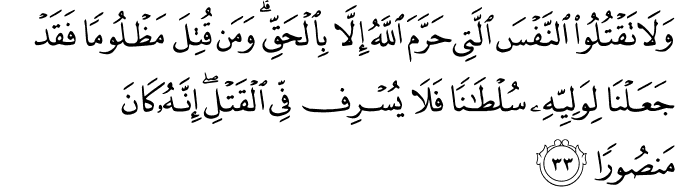 وَلَا تَقْتُلُوا۟ ٱلنَّفْسَ ٱلَّتِى حَرَّمَ ٱللَّهُ إِلَّا بِٱلْحَقِّ ۗ وَمَن قُتِلَ مَظْلُومًا فَقَدْ
جَعَلْنَا لِوَلِيِّهِۦ سُلْطَـٰنًا فَلَا يُسْرِف فِّى ٱلْقَتْلِ ۖ إِنَّهُۥ كَانَ
مَنصُورًا ٣٣